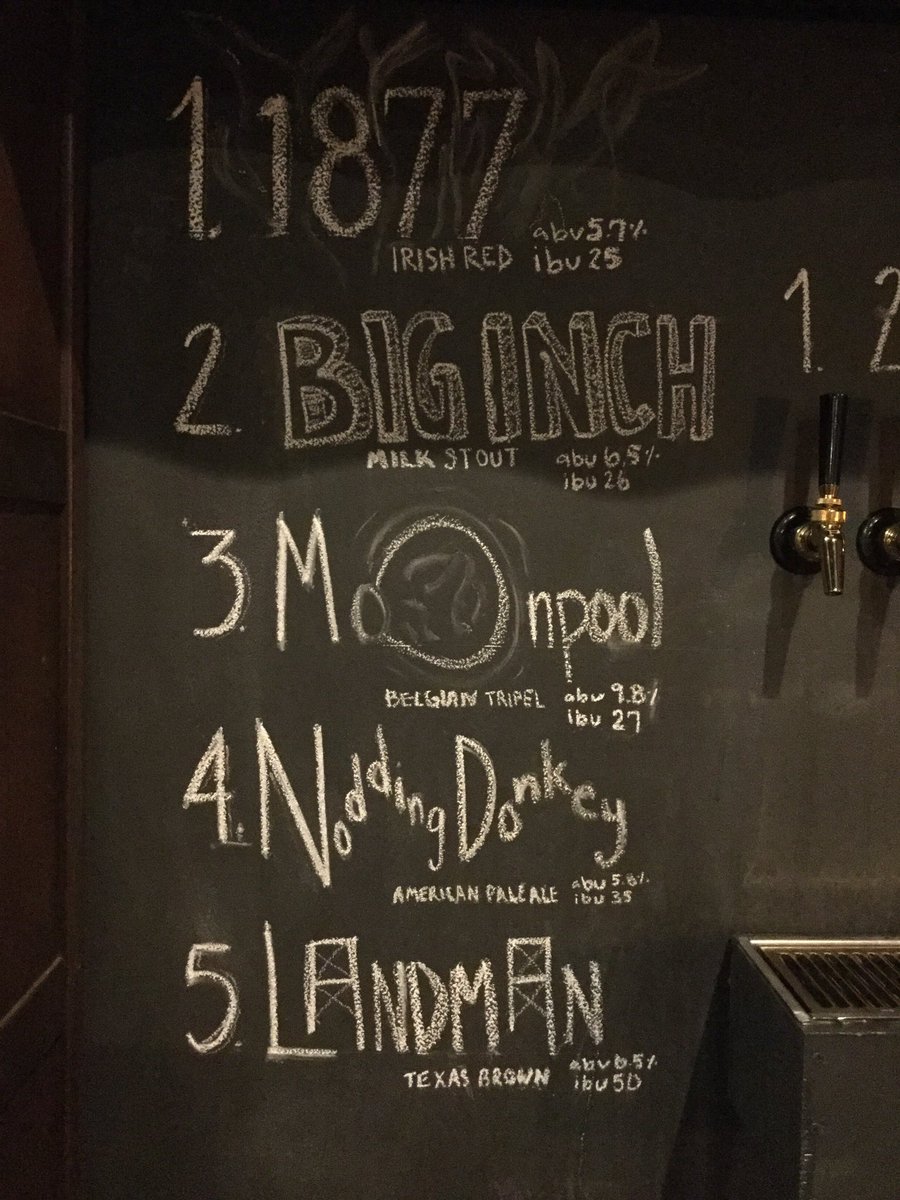 1. 1877
IRISH RED abv 5.7%
ibu 25
2. BIG INCH
MILK STOUT abv 6.5%
ibu 26
3. Moonpool
BELGIAN TRIPEL abv 9.8%
ibu 27
4. Nodding Donkey
AMERICAN PALE ALE abv 5.8%
ibu 35
5. LANDMAN
TEXAS BROWN abv 6.5%
ibu 50
1. 2